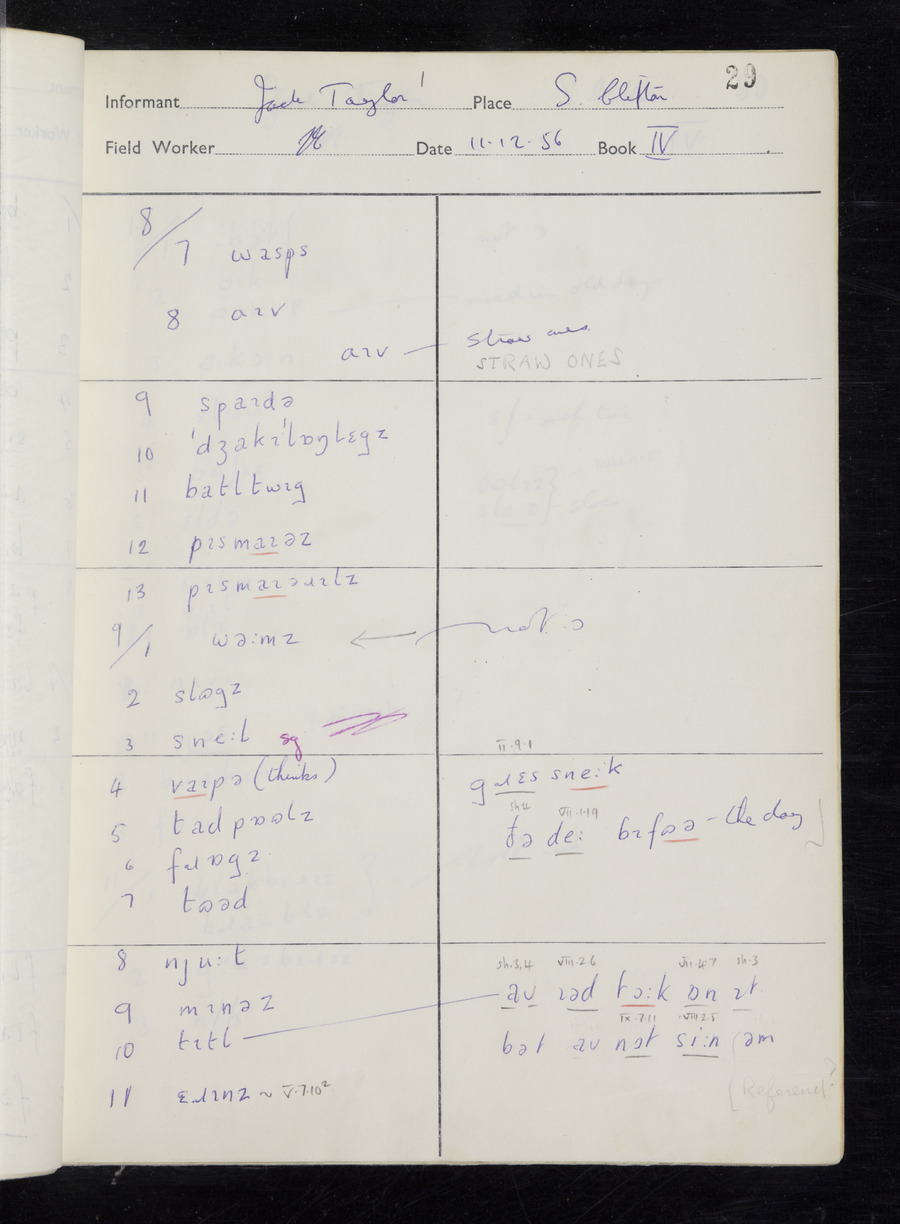 29
Informant Jack Taylor Place S. Clifton
Field Worker Date 11.12.56 Book IV
8/7 wasps
8 aɪv
aɪv — straw ones
STRAW ONES
9 spaɪdə
10 ˈdʒakɪˈlɒŋlɛgz
11 batltwɪg
12 pɪsmaɪəz
13 pɪsmaɪəɹɪlz
9/1 wəːmz ← not ɔ
2 slʊgz
3 sneːl sg
4 vaɪpə (thinks)
II.9.1
gɹɛs sneːk
5 tadpʊʊlz
sh4 VIII.1.19
ðə deː bɪfʊə – the day
6 fɹɒgz
7 tʊəd
8 njuːt
sh.3,4 VIII.2.6 VII.4.7 sh.3
9 mɪnəz
av ɪəd tɔːk ɒn ɪt
10 tɪtl
IX.7.11 VIII.2.5
bət av nɒt siːn əm
11 ɛɹɪnz ~ V.7.10²
(Reference?